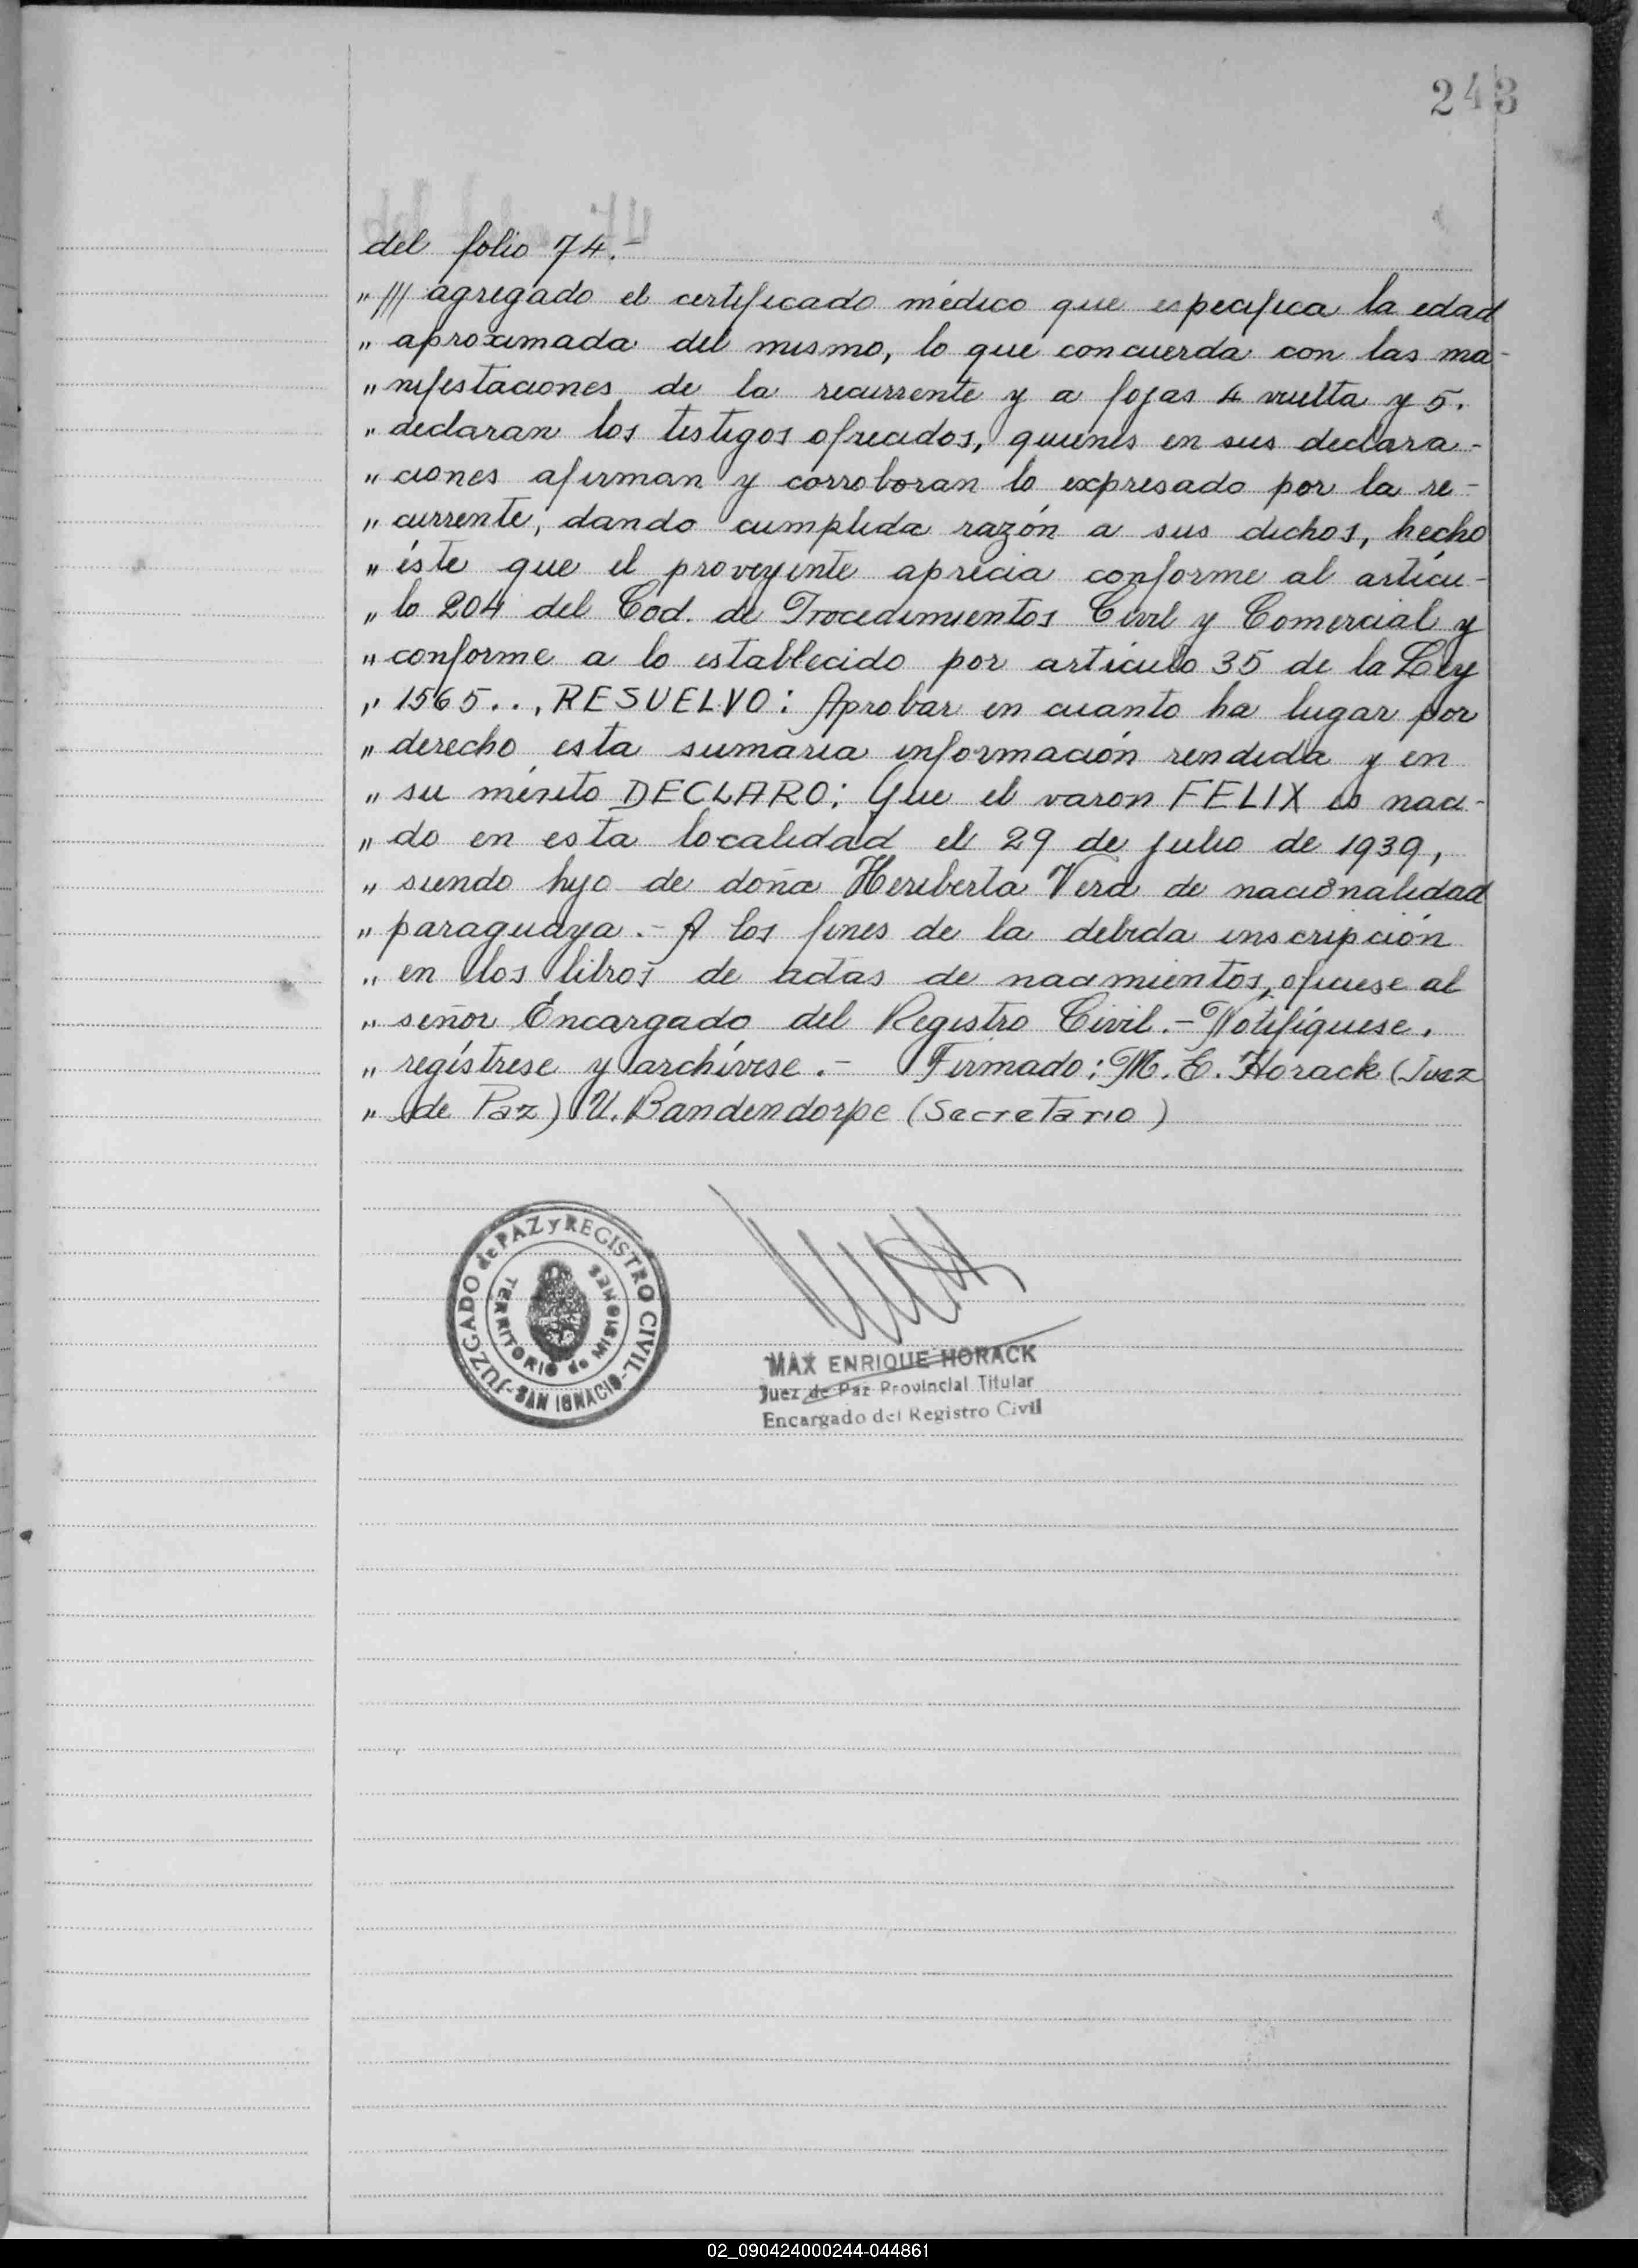 243
del folio 74.-
„ /// agregado el certificado médico que especifica la edad
„ aproximada del mismo, lo que concuerda con las ma-
„ nifestaciones de la recurrente y a fojas 4 vuelta y 5.
„ declaran los testigos ofrecidos, quienes en sus declara-
„ ciones afirman y corroboran lo expresado por la re-
„ currente, dando cumplida razón a sus dichos, hecho
„ éste que el proveyente aprecia conforme al artícu-
„ lo 204 del Cod. de Procedimientos Civil y Comercial y
„ conforme a lo establecido por artículo 35 de la Ley
„ 1565..., RESUELVO: Aprobar en cuanto ha lugar por
„ derecho esta sumaria información rendida y en
„ su mérito DECLARO: Que el varon FELIX es naci-
„ do en esta localidad el 29 de julio de 1939,
„ siendo hijo de doña Heriberta Vera de nacionalidad
„ paraguaya.- A los fines de la debida inscripción
„ en los libros de actas de nacimientos, ofíciese al
„ señor Encargado del Registro Civil.- Notifíquese,
„ regístrese y archívese.- Firmado: M. E. Horack (Juez
„ de Paz) U. Bandendorpe (Secretario)
JUZGADO de PAZ y REGISTRO CIVIL
-SAN IGNACIO-
TERRITORIO de MISIONES
MAX ENRIQUE HORACK
Juez de Paz Provincial Titular
Encargado del Registro Civil
02_090424000244-044861